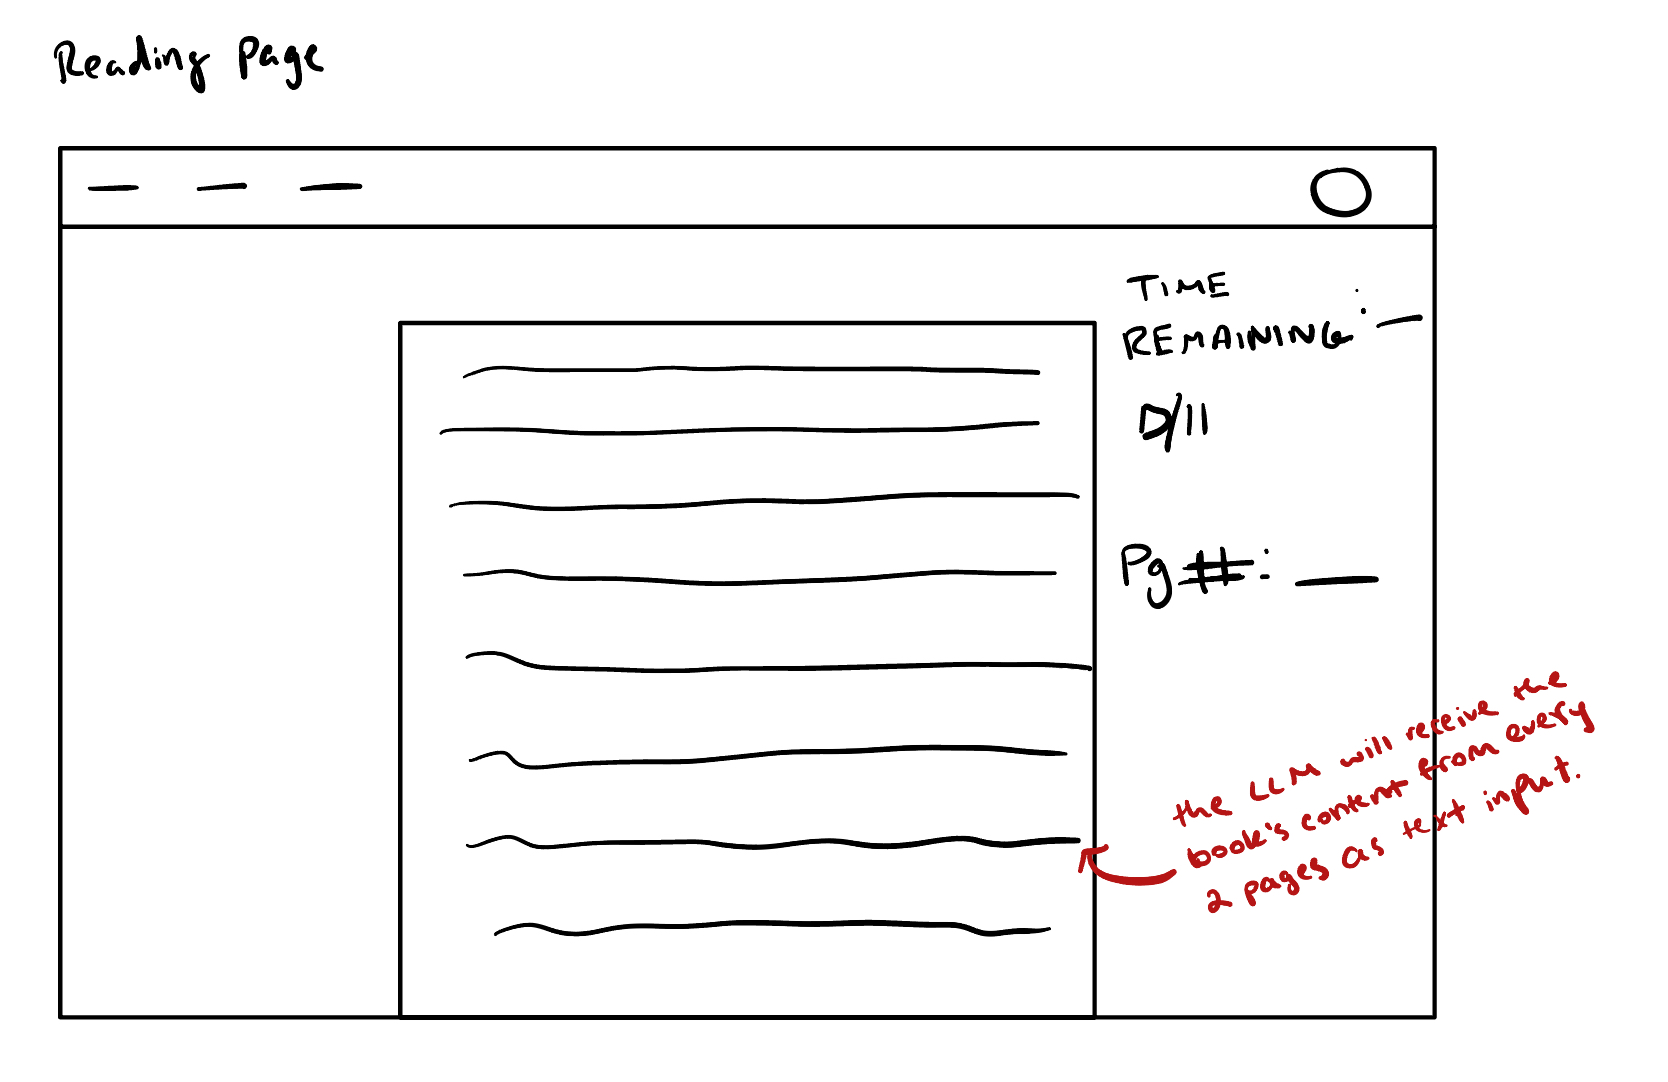 Reading Page
TIME
REMAINING:
Pg #:
the LLM will receive the
book's content from every
2 pages as text input.